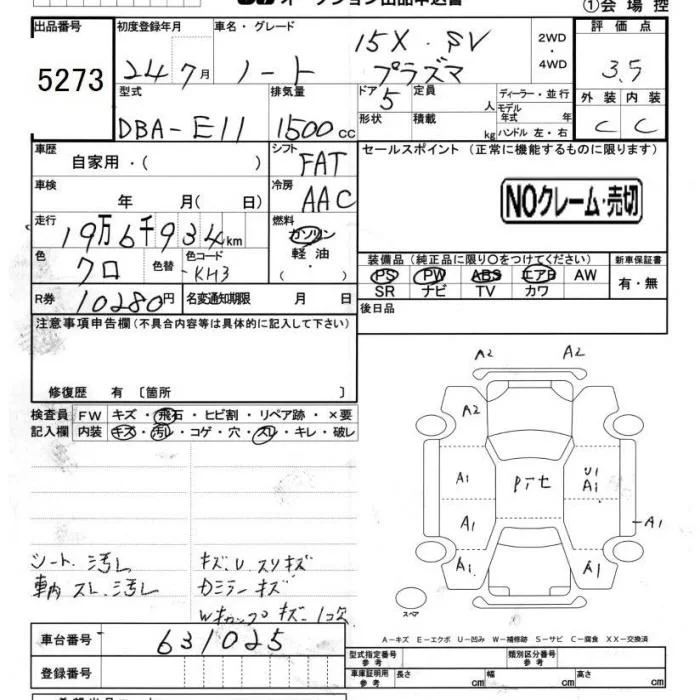 オークション出品申込書
①会場控
出品番号
5273
初度登録年月
24年7月
車名・グレード
ノート
15X・SV
プラズマ
2WD
・
4WD
評価点
3.5
外装 内装
C C
型式
DBA-E11
排気量
1500cc
ドア
5
定員
人
形状
積載
kg
ディーラー・並行
モデル年式 年
ハンドル 左・右
車歴
自家用・( )
シフト
FAT
車検
年 月( 日)
冷房
AAC
走行
19万6千934km
燃料
ガソリン
軽油
( ・ )
色
クロ
色替
色コード
KH3
R券
10280円
名変通知期限 月 日
セールスポイント (正常に機能するものに限ります)
NOクレーム・売切
装備品(純正品に限り〇をつけてください)
PS PW ABS エアB AW
SR ナビ TV カワ
新車保証書
有・無
後日品
注意事項申告欄(不具合内容等は具体的に記入して下さい)
修復歴 有〔箇所 〕
検査員
記入欄
FW キズ・飛石・ヒビ割・リペア跡・×要
内装 キズ・汚レ・コゲ・穴・スレ・キレ・破レ
シート汚レ
車内スレ汚レ
キズ.U.スリキズ
カミラーキズ
Wキャップキズ-1コ欠
A2 A2
A2
A1
U1
A1
A1
A1
A1
A1
スペア
A-キズ E-エクボ U-凹み W-補修跡 S-サビ C-腐食 XX-交換済
車台番号
631025
登録番号
型式指定番号
参考
類別区分番号
参考
車庫証明用
参考
長さ cm 幅 cm 高さ cm